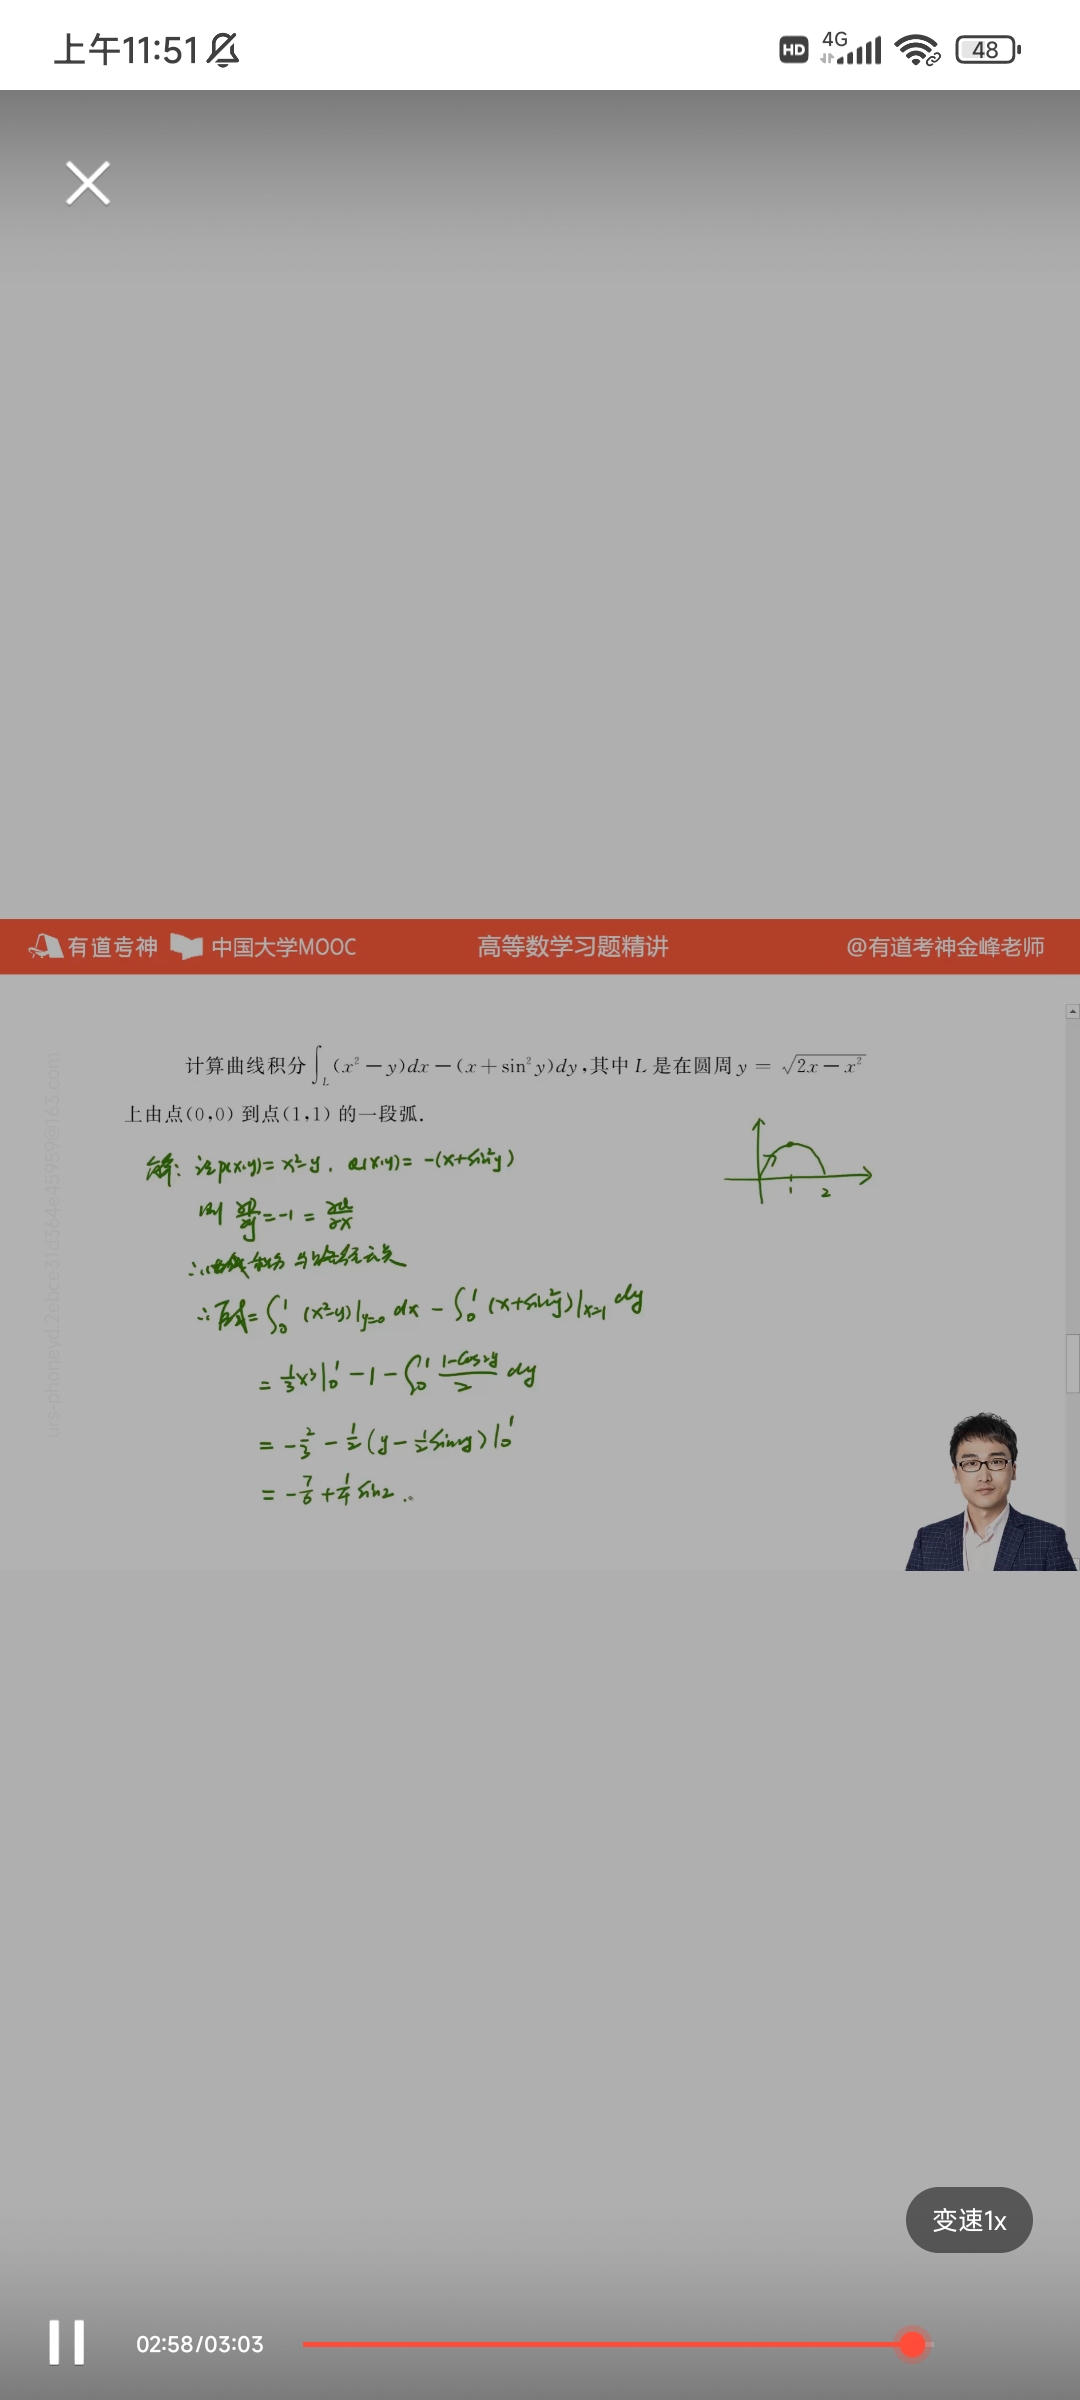 上午11:51
HD 4G 48
有道考神 中国大学MOOC 高等数学习题精讲 @有道考神金峰老师
计算曲线积分∫_L (x² − y)dx − (x + sin² y)dy,其中 L 是在圆周 y = √(2x − x²)
上由点(0,0) 到点(1,1) 的一段弧.
解: 设 p(x,y) = x²-y, Q(x,y) = -(x+sin²y)
则 ∂P/∂y = -1 = ∂Q/∂x
∴ 曲线积分与路径无关
∴ 原式 = ∫₀¹ (x²-y)|y=0 dx - ∫₀¹ (x+sin²y)|x=1 dy
= 1/3 x³|₀¹ - 1 - ∫₀¹ (1-cos2y)/2 dy
= -2/3 - 1/2 (y - 1/2 sin2y)|₀¹
= -7/6 + 1/4 sin2 .
1 2
变速1x
02:58/03:03